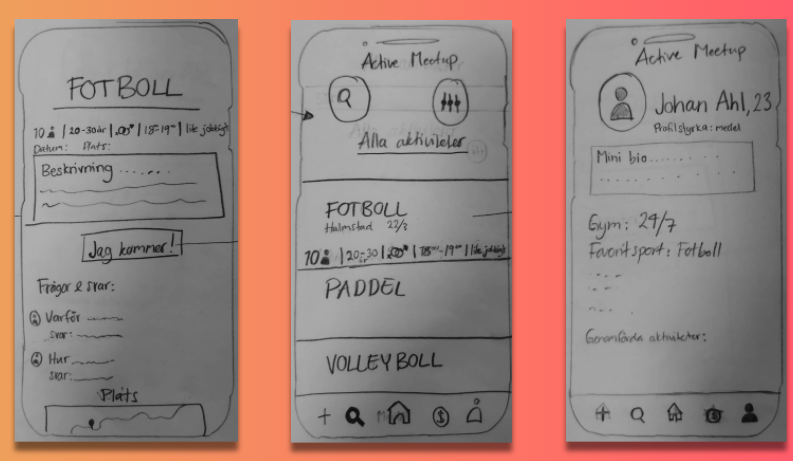 FOTBOLL
10 | 20-30år | | 18-19 | lite jobbigt
Datum: Plats:
Beskrivning ......
Jag kommer!
Frågor & svar:
Varför
svar:
Hur
svar:
Plats
Active Meetup
Alla aktiviteter
FOTBOLL
Halmstad 22/3
10 | 20-30 år | | 18-19 | lite jobbigt
PADDEL
VOLLEYBOLL
Active Meetup
Johan Ahl, 23
Profilstyrka: medel
Mini bio......
Gym: 24/7
Favoritsport: Fotboll
Genomförda aktiviteter: